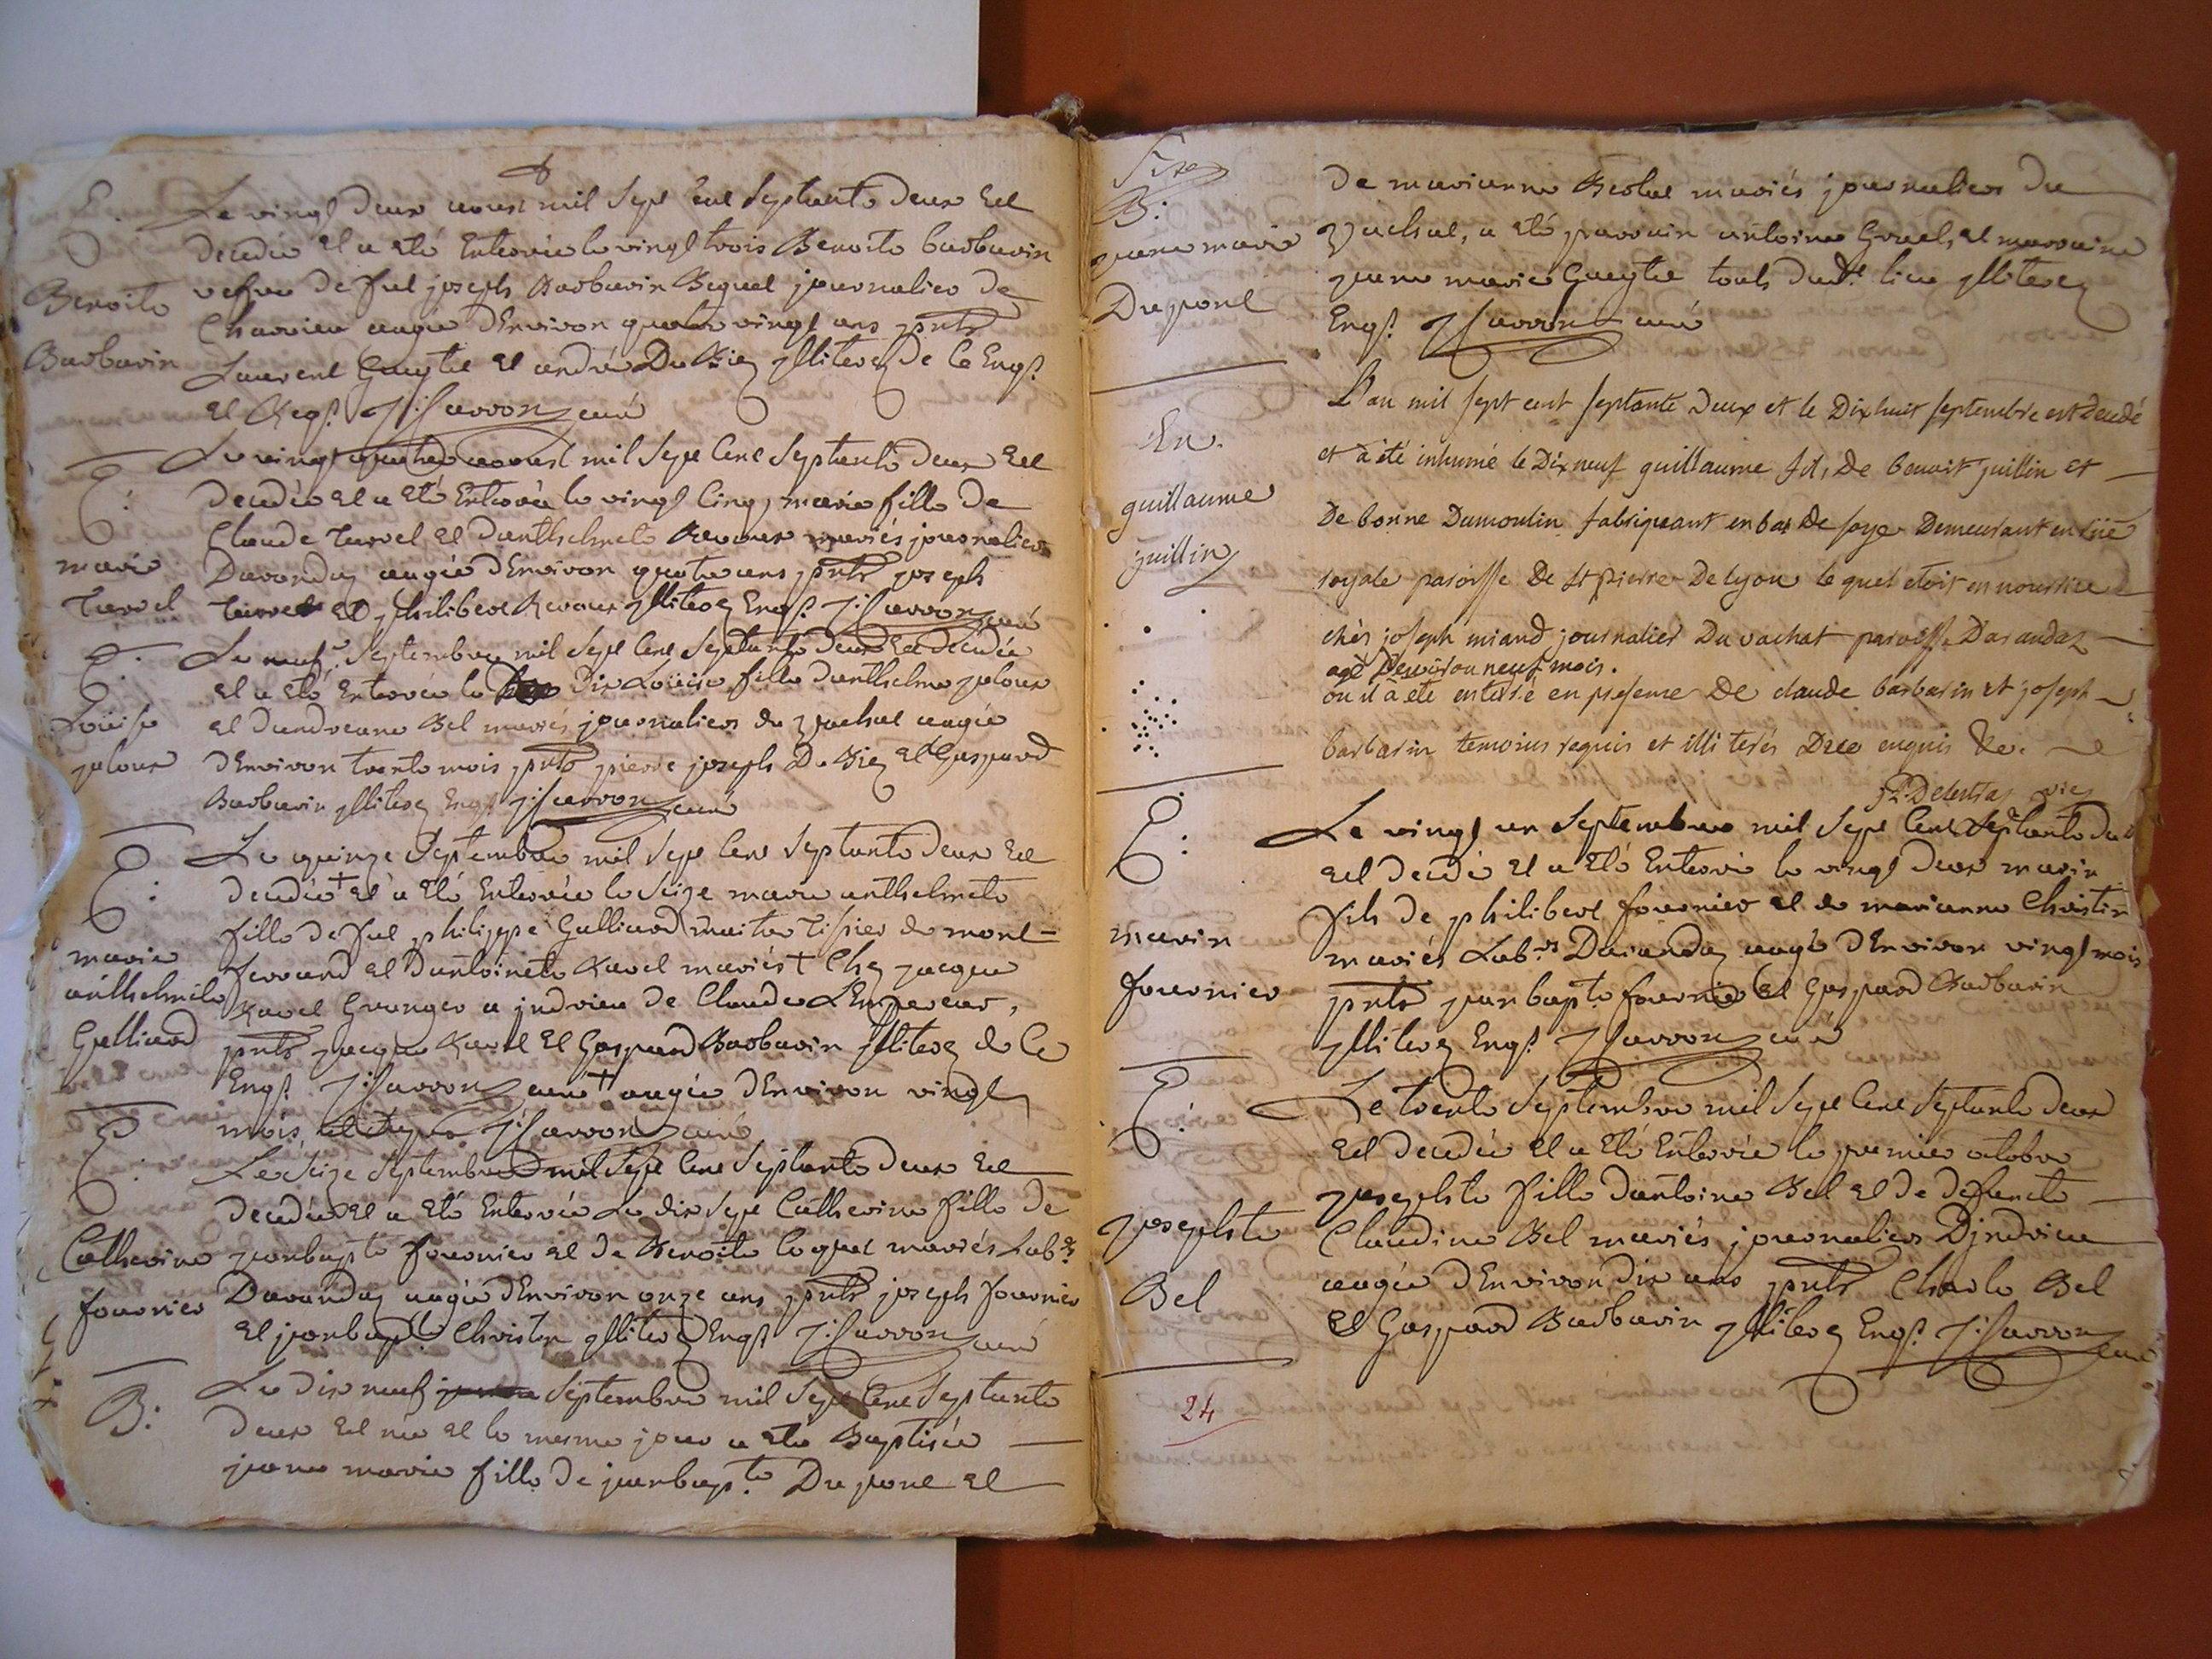 E.
Benoite
Barbarin
Le vingt deux aoust mil sept cent septante deux est
decedée et a eté Enterrée le vingt trois Benoite barbarin
vefve de fut joseph Barbarin journalier de
Charvieu aagée d'Environ quatre vingt ans pnts
Laurent et andré Du Biez illiterez de ce Engs
et Reqs curé
E:
marie
turrel
Le vingt quatre aoust mil sept cent septante deux est
decedée et a eté Enterrée le vingt cinq, marie fille de
Claude turrel et d'anthelmete mariés journaliers
Darandaz aagée d'Environ quatre ans pnts joseph
turrel et philibert illiterez Engs curé
E:
Loüise
jaloux
Le neuf septembre mil sept cent septante deux est decedée
et a eté Enterrée le dix Loüise fille d'anthelme jaloux
et d'andreane Bel mariés journaliers du vachat aagée
d'Environ trente mois pnts pierre joseph Du Biez et Gaspard
Barbarin illiterez Engs curé
E:
marie
anthelmete
Galliard
Le quinze septembre mil sept cent septante deux est
decedée + et a eté Enterrée le seize marie anthelmete
fille de fut philippe Galliard maitre tissier de mont-
ferrand et d'antoinete Ravel mariés + Chez jacque
Ravel Granger a indrieu de Claude L'Empereur,
pnts jacque Ravel et Gaspard Barbarin illiterez de Ce
Engs curé + aagée d'Environ vingt
mois curé
E:
Catherine
fournier
Le seize septembre mil sept cent septante deux est
decedée et a eté Enterrée Le dix sept Catherine fille de
janbapte fournier et de Benoite mariés Labrs
Darandaz aagée d'Environ onze ans pnts joseph fournier
et janbapte Christin illiterez Engs curé
B:
Le dix neuf septembre mil sept cent septante
deux est née et le mesme jour a eté Baptisée
jane marie fille de janbapte Dupont et
B:
jane marie
Dupont
de marianne mariés journaliers du
vachat, a eté parrain antoine et marraine
jane marie touts dudt lieu illiterez
Engs curé
En.
guillaume
juillin
L'an mil sept cent septante deux et le Dixhuit septembre est decedé
et à été inhumé le Dix neuf guillaume fils De benoit juillin et
De bonne Dumoulin fabriquant en bas De soye Demeurant en rüe
royale paroisse De St pierre De lyon le quel etoit en nourrice
chés joseph miand journalier Du vachat paroisse D'arandaz
agé D'environ neuf mois.
où il à eté enterré en presence De claude barbarin et joseph
barbarin temoins requis et illiterés Dece enquis &c.
Delestraz vic
E:
marin
fournier
Le vingt un septembre mil sept cent septante deux
est decedé et a eté Enterré le vingt deux marin
fils de philibert fournier et de marianne Christin
mariés Labrs Darandaz aagé d'Environ vingt mois
pnts janbapte fournier et Gaspard Barbarin
illiterez Engs curé
E:
josephte
Bel
Le trente septembre mil sept cent septante deux
est decedée et a eté Enterrée le premier octobre
josephte fille d'antoine Bel et de defuncte
Claudine Bel mariés journaliers D'indrieu
aagée d'Environ dix ans pnts Charle Bel
et Gaspard Barbarin illiterez Engs curé
24